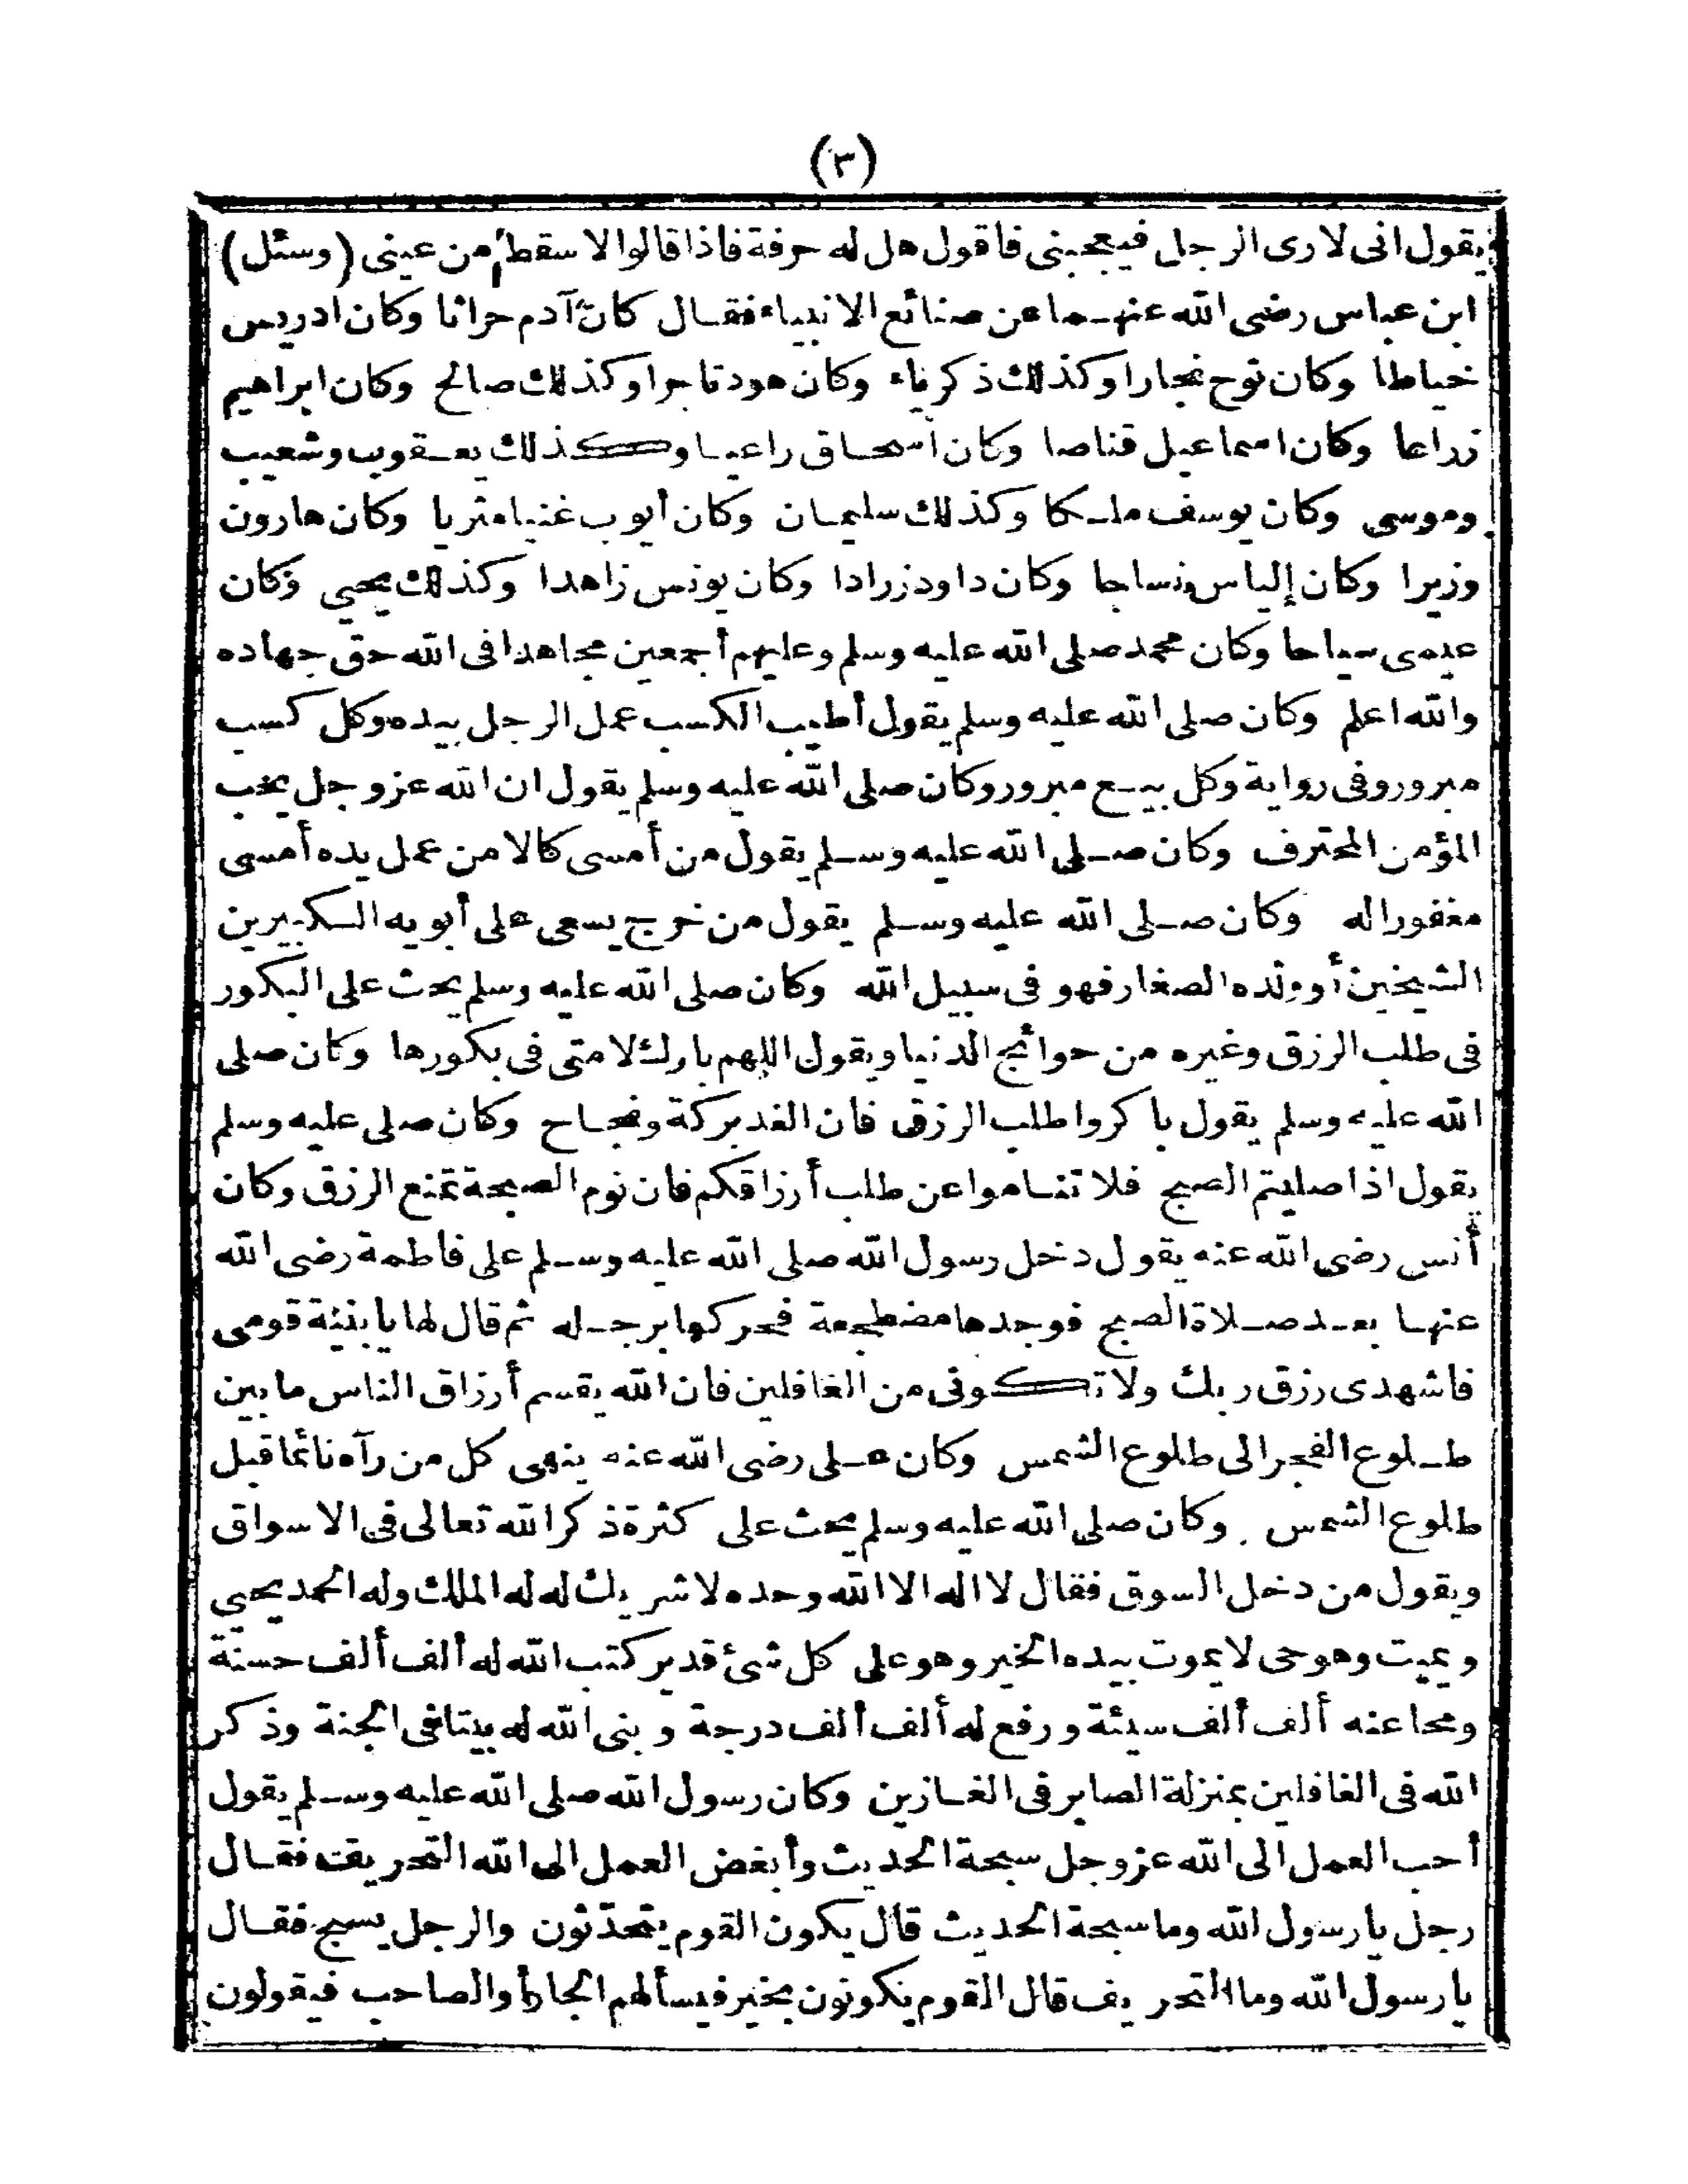 (٣)
يقول انى لارى الرجل فيعجبنى فاقول هل له حرفة فاذا قالوا لا سقط من عينى (وسئل)
ابن عباس رضى الله عنهما عن صنائع الانبياء فقال كان آدم حراثا وكان ادريس
خياطا وكان نوح نجارا وكذلك ذكرياء وكان هود تاجرا وكذلك صالح وكان ابراهيم
زراعا وكان اسماعيل قناصا وكان أسحاق راعيا وكذلك يعقوب وشعيب
وموسى وكان يوسف ملكا وكذلك سليمان وكان أيوب غنيا مثريا وكان هارون
وزيرا وكان إلياس نساجا وكان داود زرادا وكان يونس زاهدا وكذلك يحيى وكان
عيسى سياحا وكان محمد صلى الله عليه وسلم وعليهم أجمعين مجاهدا فى الله حق جهاده
والله اعلم وكان صلى الله عليه وسلم يقول أطيب الكسب عمل الرجل بيده وكل كسب
مبرور وفى رواية وكل بيع مبرور وكان صلى الله عليه وسلم يقول ان الله عز وجل يحب
المؤمن المحترف وكان صلى الله عليه وسلم يقول من أمسى كالا من عمل يده أمسى
مغفورا له وكان صلى الله عليه وسلم يقول من خرج يسعى على أبويه الكبيرين
الشيخين أو ولده الصغار فهو فى سبيل الله وكان صلى الله عليه وسلم يحث على البكور
فى طلب الرزق وغيره من حوائج الدنيا ويقول اللهم بارك لامتى فى بكورها وكان صلى
الله عليه وسلم يقول باكروا طلب الرزق فان الغد بركة ونجاح وكان صلى عليه وسلم
يقول اذا صليتم الصبح فلا تناموا عن طلب أرزاقكم فان نوم الصبحة تمنع الرزق وكان
أنس رضى الله عنه يقول دخل رسول الله صلى الله عليه وسلم على فاطمة رضى الله
عنها بعد صلاة الصبح فوجدها مضطجعة فحركها برجله ثم قال لها يا بنية قومى
فاشهدى رزق ربك ولا تكونى من الغافلين فان الله يقسم أرزاق الناس ما بين
طلوع الفجر الى طلوع الشمس وكان على رضى الله عنه ينهى كل من رآه نائما قبل
طلوع الشمس . وكان صلى الله عليه وسلم يحث على كثرة ذكر الله تعالى فى الاسواق
ويقول من دخل السوق فقال لا اله الا الله وحده لا شريك له له الملك وله الحمد يحيى
ويميت وهو حى لا يموت بيده الخير وهو على كل شئ قدير كتب الله له ألف ألف حسنة
ومحا عنه ألف ألف سيئة ورفع له ألف ألف درجة وبنى الله له بيتا فى الجنة وذكر
الله فى الغافلين بمنزلة الصابر فى الغازين وكان رسول الله صلى الله عليه وسلم يقول
أحب العمل الى الله عز وجل سبحة الحديث وأبغض العمل الى الله التحريف فقال
رجل يا رسول الله وما سبحة الحديث قال يكون القوم يتحدّثون والرجل يسبح فقال
يا رسول الله وما التحريف قال القوم يكونون بخير فيسألهم الجار أو الصاحب فيقولون